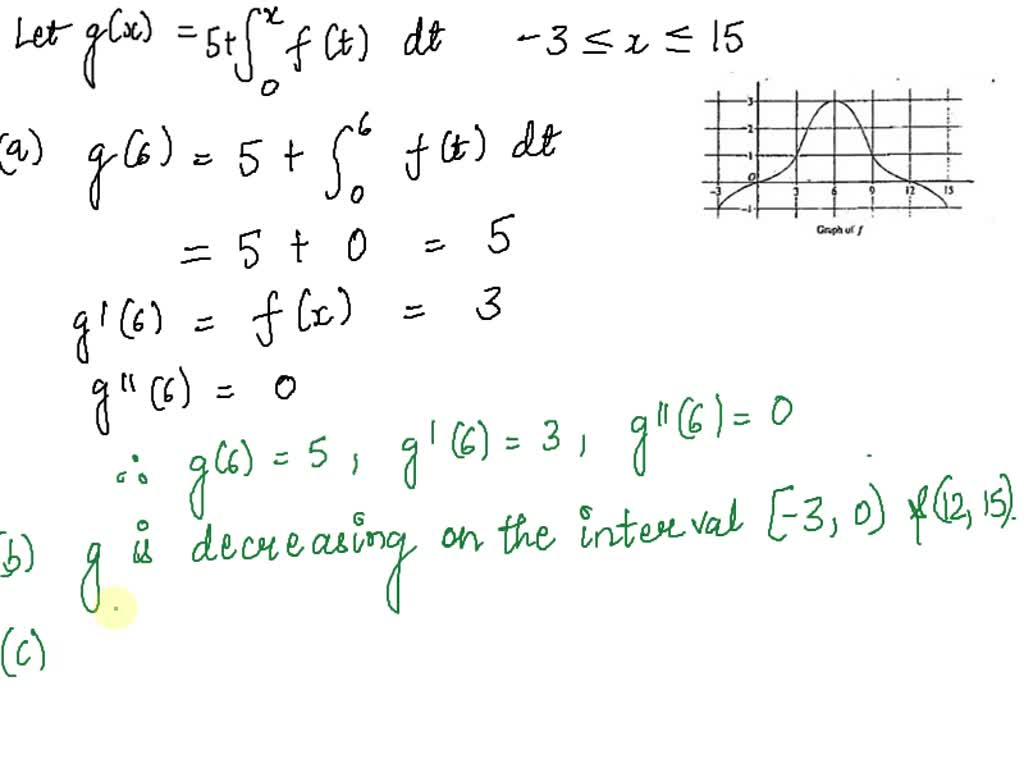 Let g(x) = 5+∫₀ˣ f(t) dt -3 ≤ x ≤ 15
(a) g(6) = 5 + ∫₀⁶ f(t) dt
= 5 + 0 = 5
g'(6) = f(x) = 3
g''(6) = 0
∴ g(6) = 5, g'(6) = 3, g''(6) = 0
(b) g is decreasing on the interval [-3, 0) & (12, 15).
(c)
3
2
1
0
-3 3 6 9 12 15
-1
Graph of f